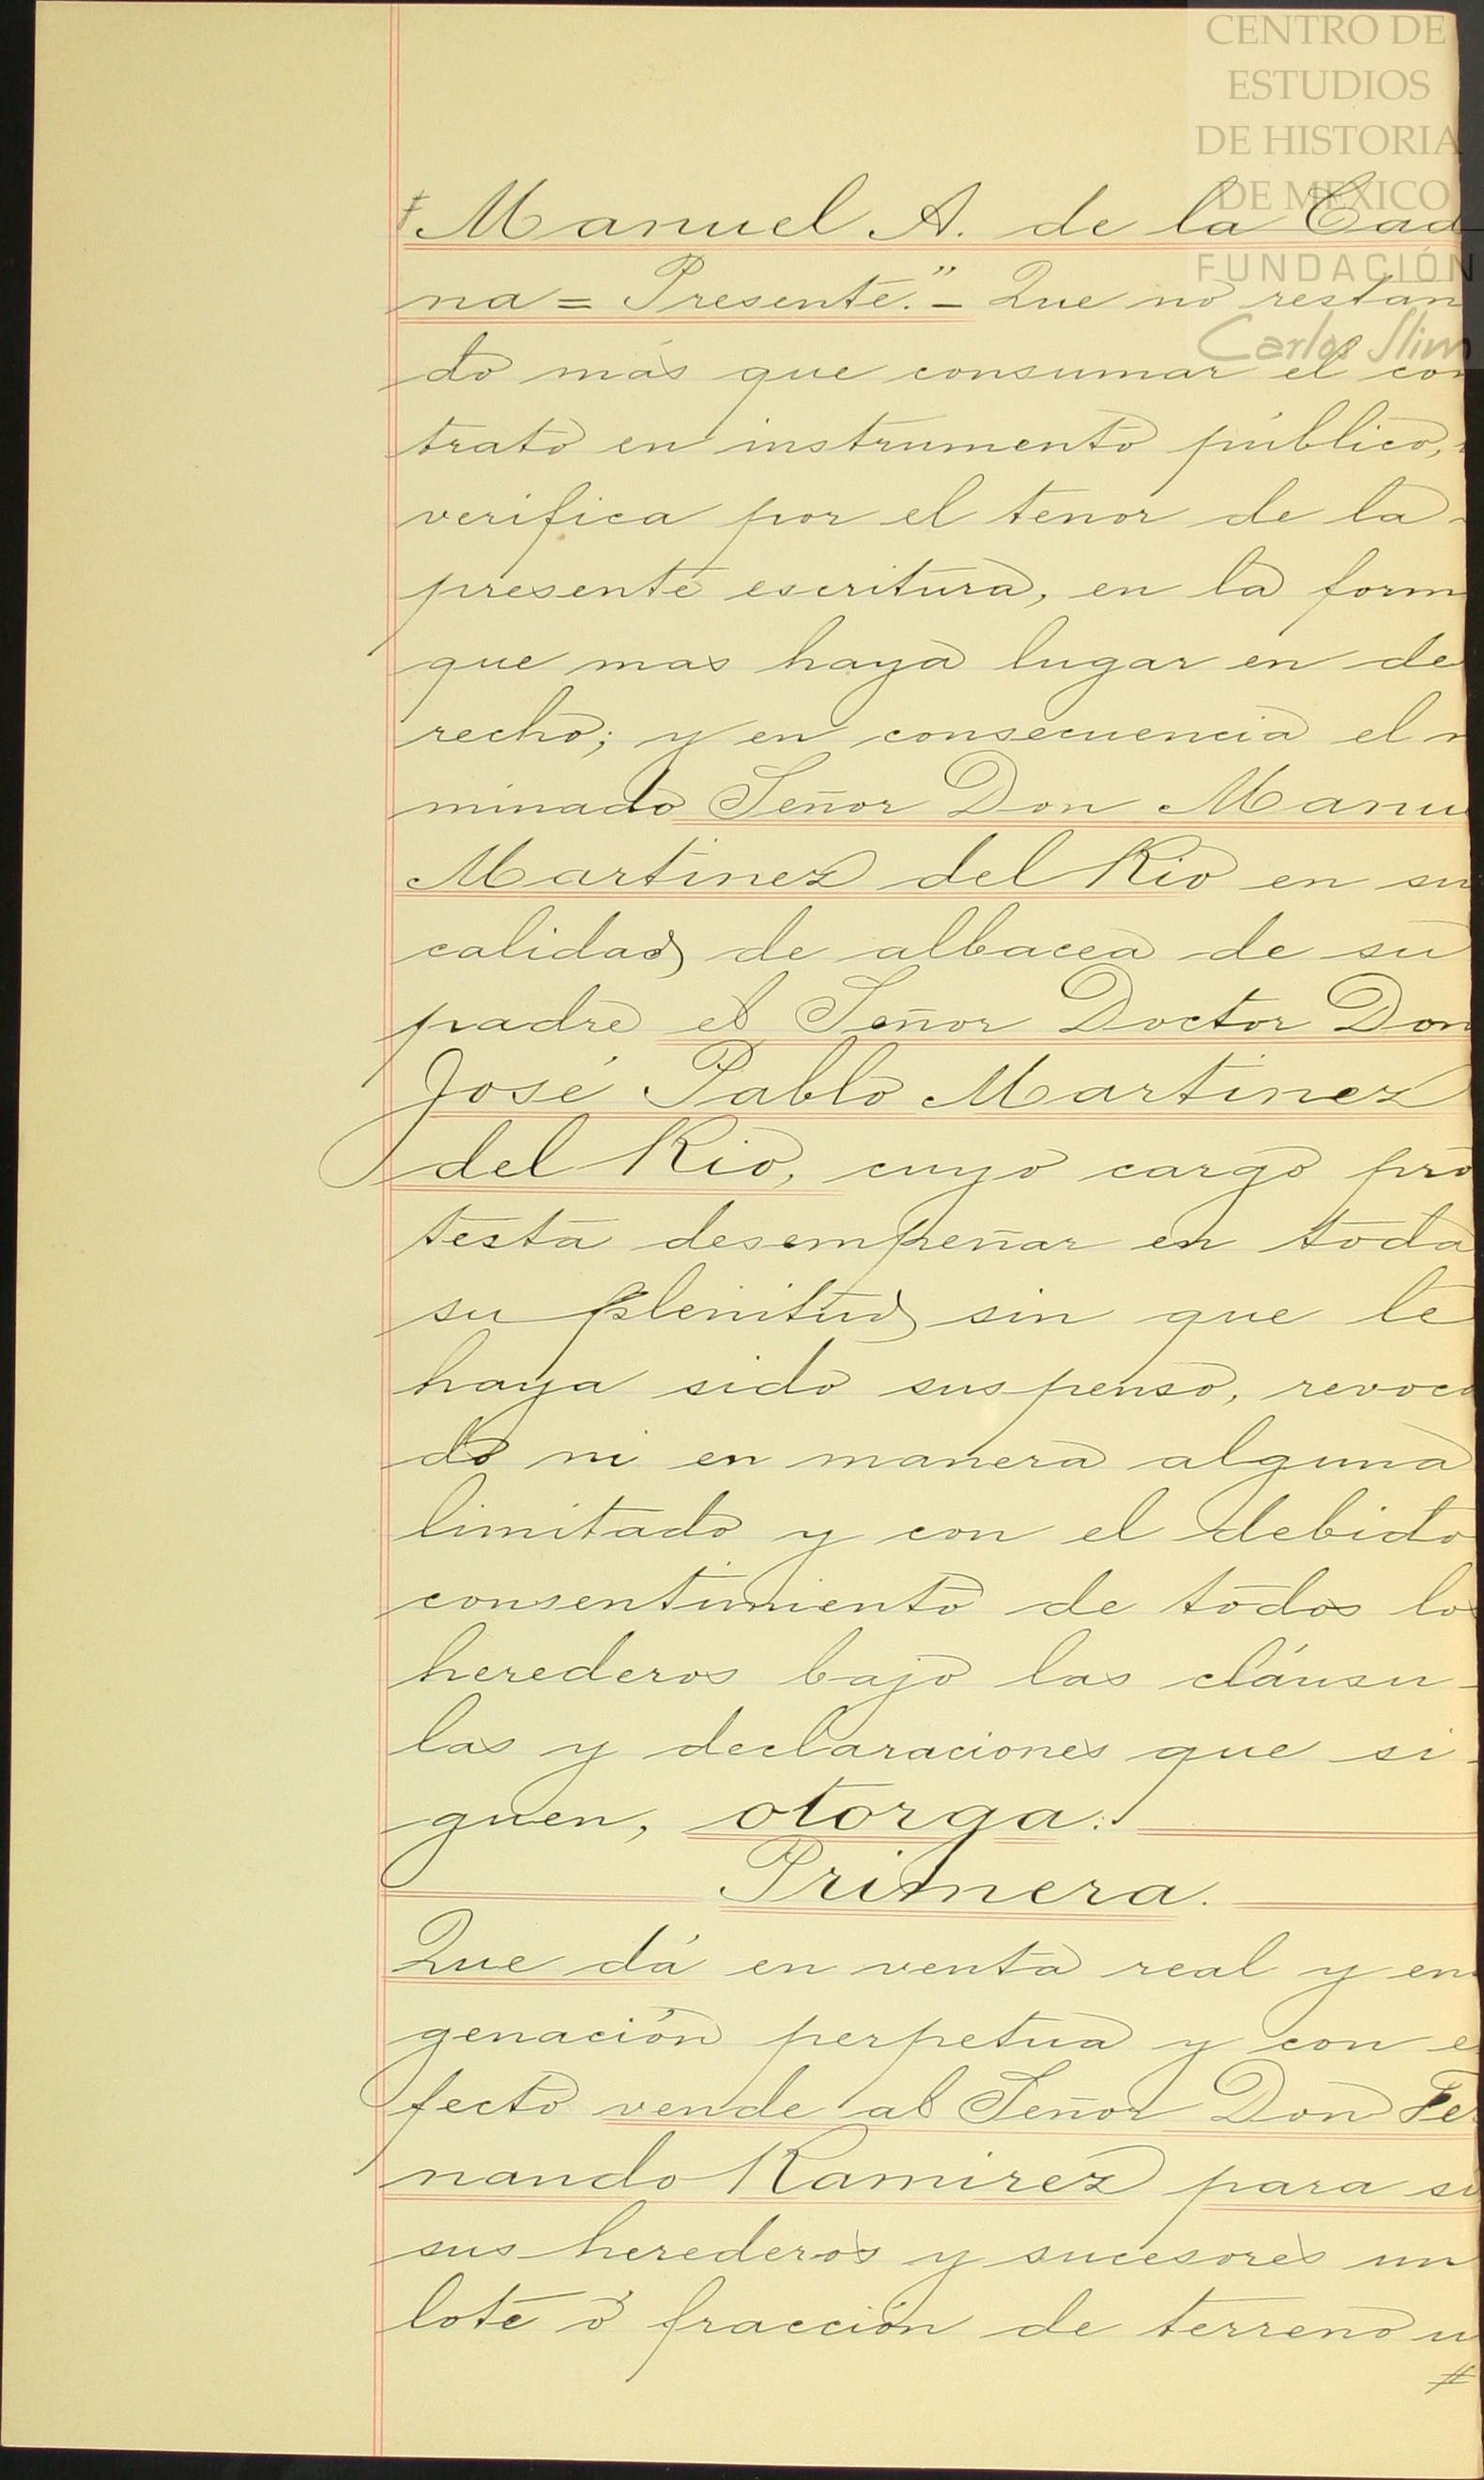 CENTRO DE
ESTUDIOS
DE HISTORIA
DE MEXICO
FUNDACIÓN
Carlos Slim
Manuel A. de la Cad
na = Presente." - Que no restan
do más que consumar el con
trato en instrumento público,
verifica por el tenor de la
presente escritura, en la form
que mas haya lugar en de
recho; y en consecuencia el n
minado Señor Don Manu
Martinez del Rio en su
calidad de albacea de su
padre el Señor Doctor Don
José Pablo Martinez
del Rio, cuyo cargo pro
testa desempeñar en toda
su plenitud sin que le
haya sido suspenso, revoca
do ni en manera alguna
limitado y con el debido
consentimiento de todos los
herederos bajo las cláusu-
las y declaraciones que si-
guen, otorga:
Primera.
Que dá en venta real y ena
genación perpetua y con e
fecto vende al Señor Don Fer
nando Ramirez para si
sus herederos y sucesores un
lote ó fracción de terreno u
#